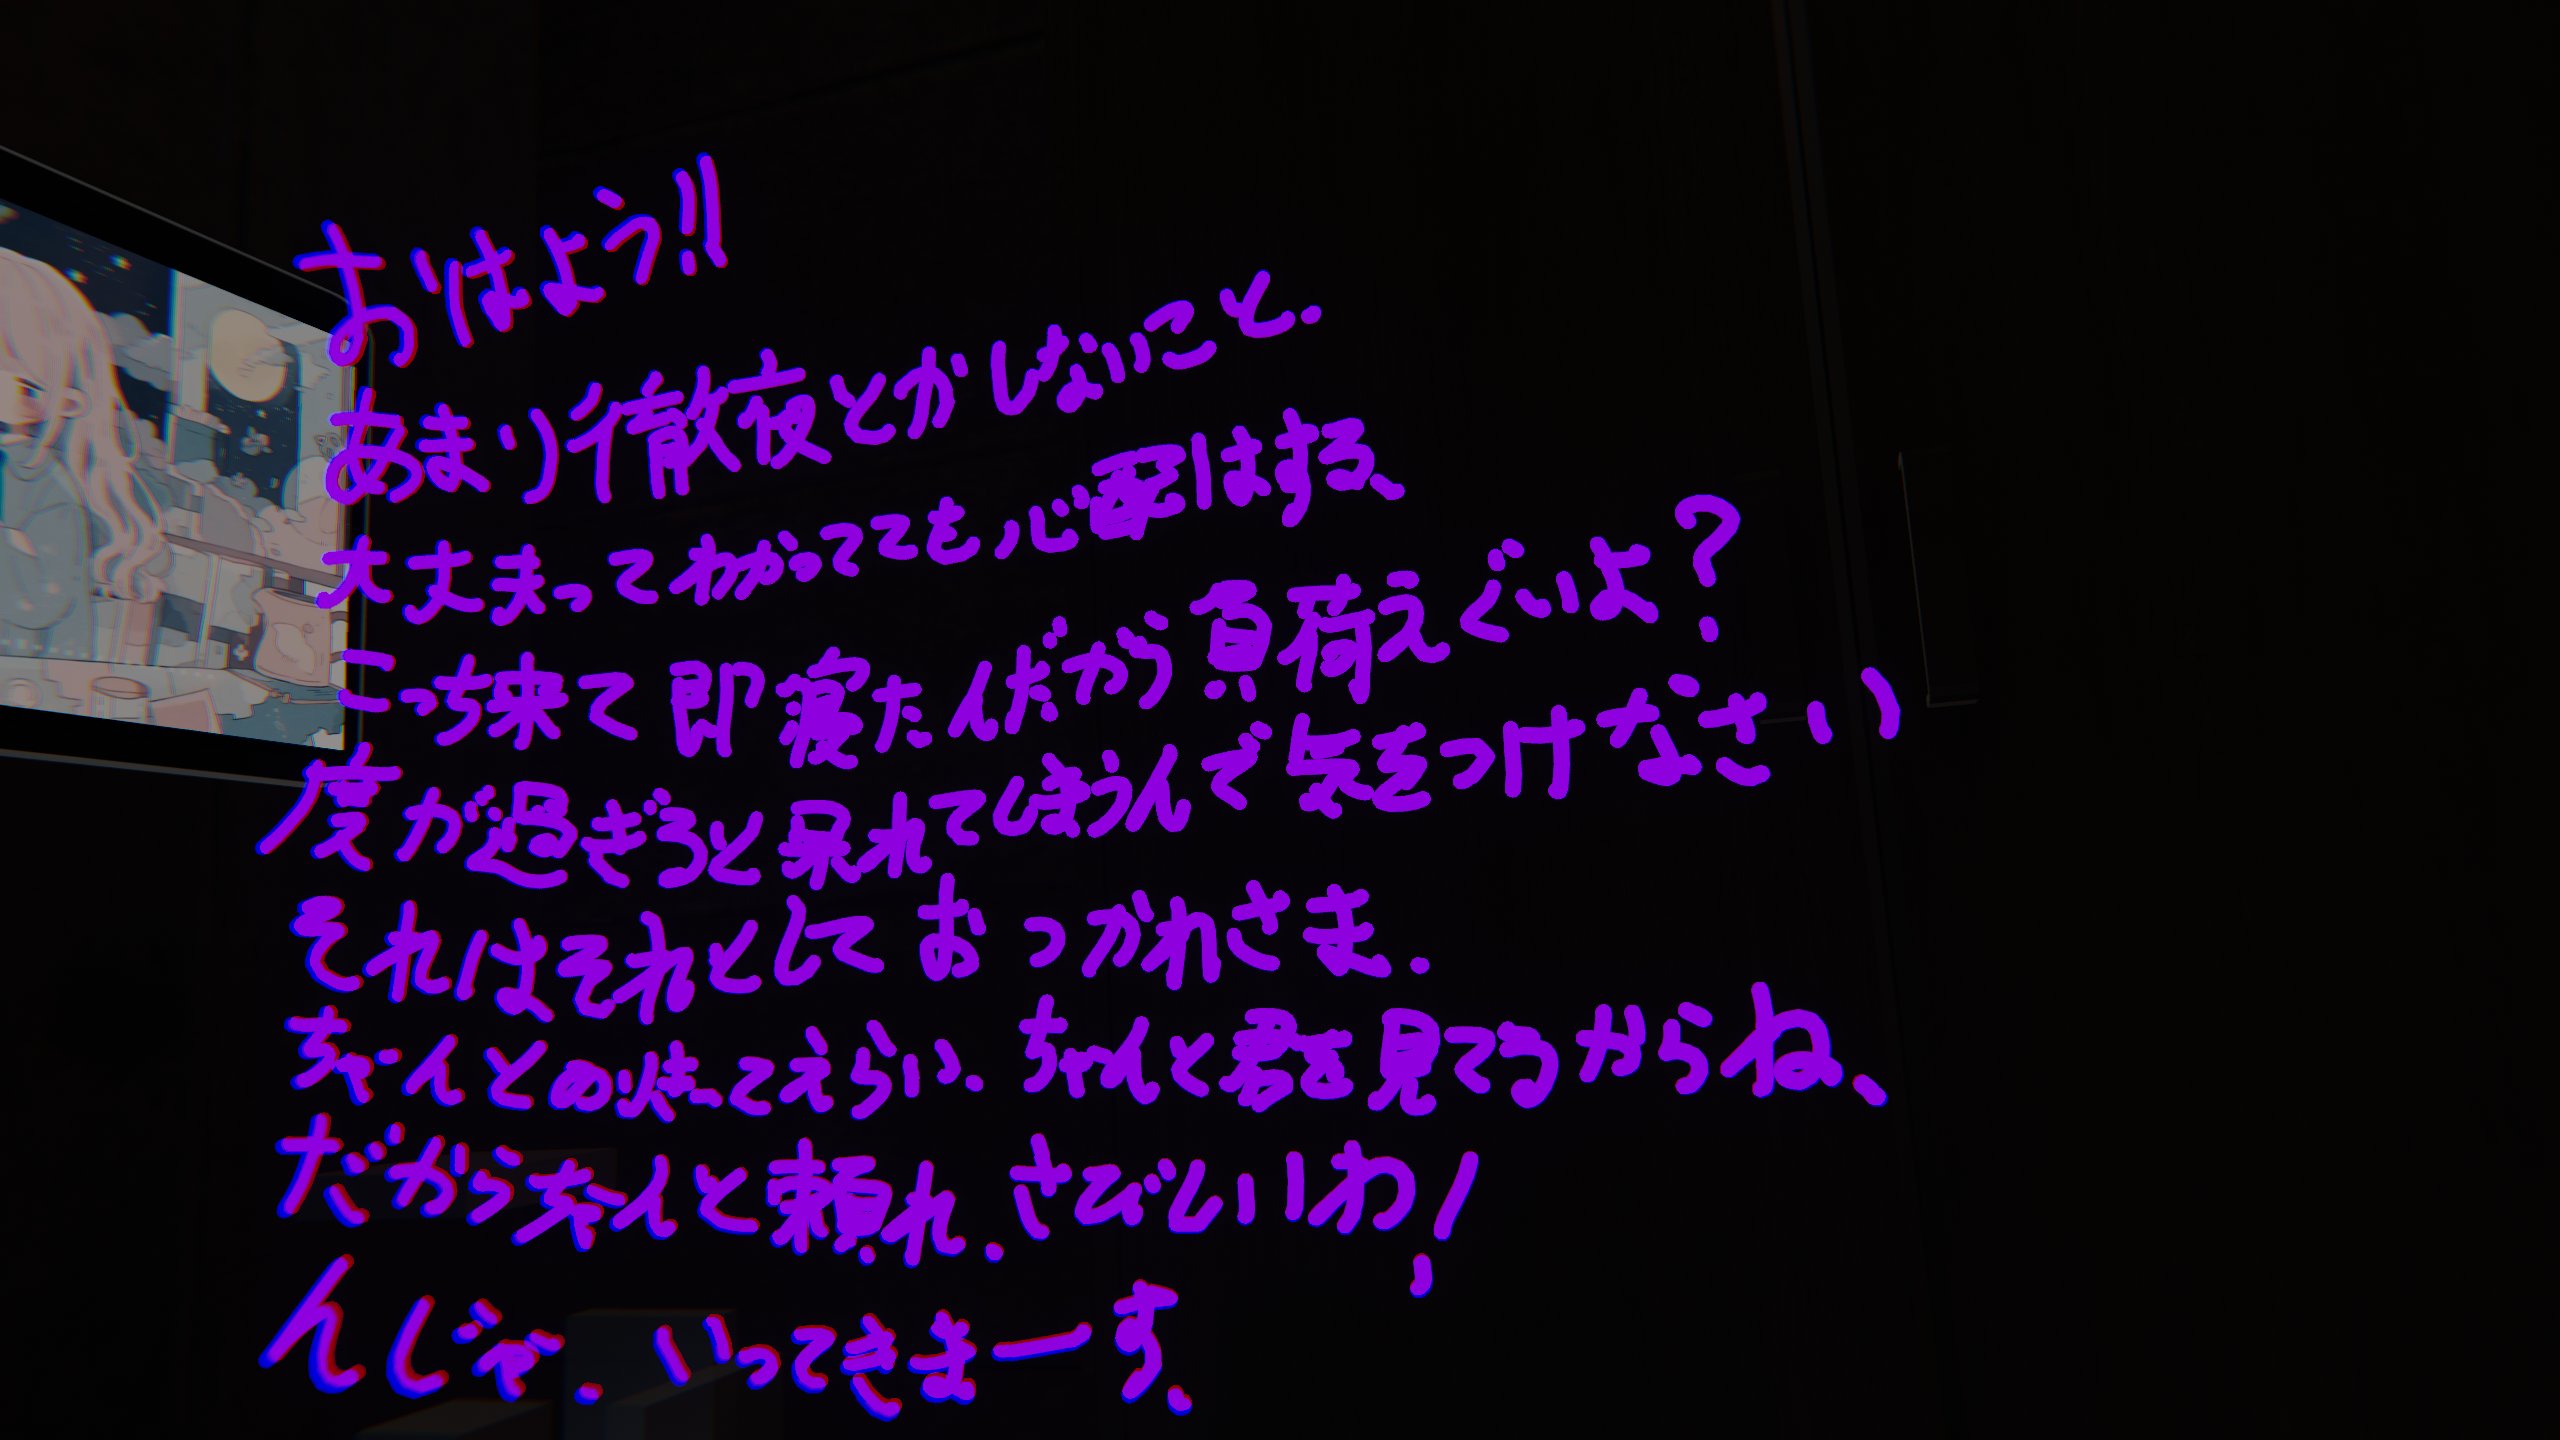 おはよう!!
あまり徹夜とかしないこと.
大丈夫ってわかってても心配はする、
こっち来て即寝たんだから負荷えぐいよ？
度が過ぎると呆れてしまうんで気をつけなさい
それはそれとしておつかれさま.
ちゃんとのせてえらい. ちゃんと君を見てるからね、
だからちゃんと頼れ. さびしいわ!
んじゃ. いってきまーす.